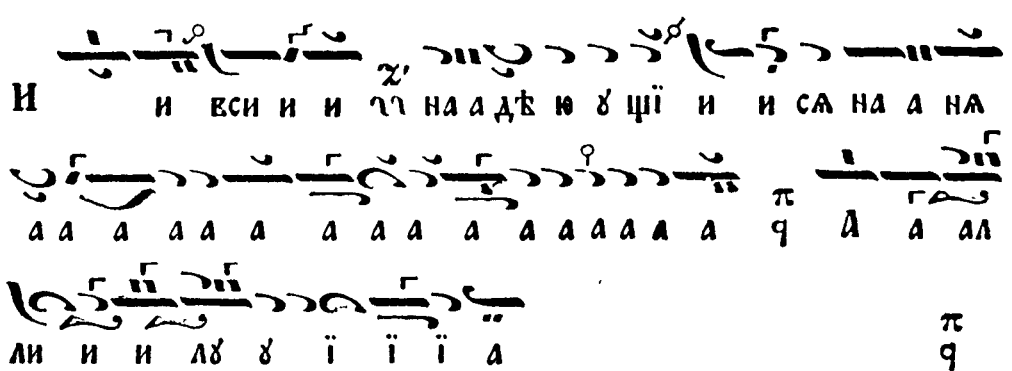 И и вси и и и на а дѣ ю ꙋ щї и и сѧ на а нѧ
а а а а а а а а а а а а а а а а а π q А а ал
ли и и лꙋ ꙋ ї ї ї а π q